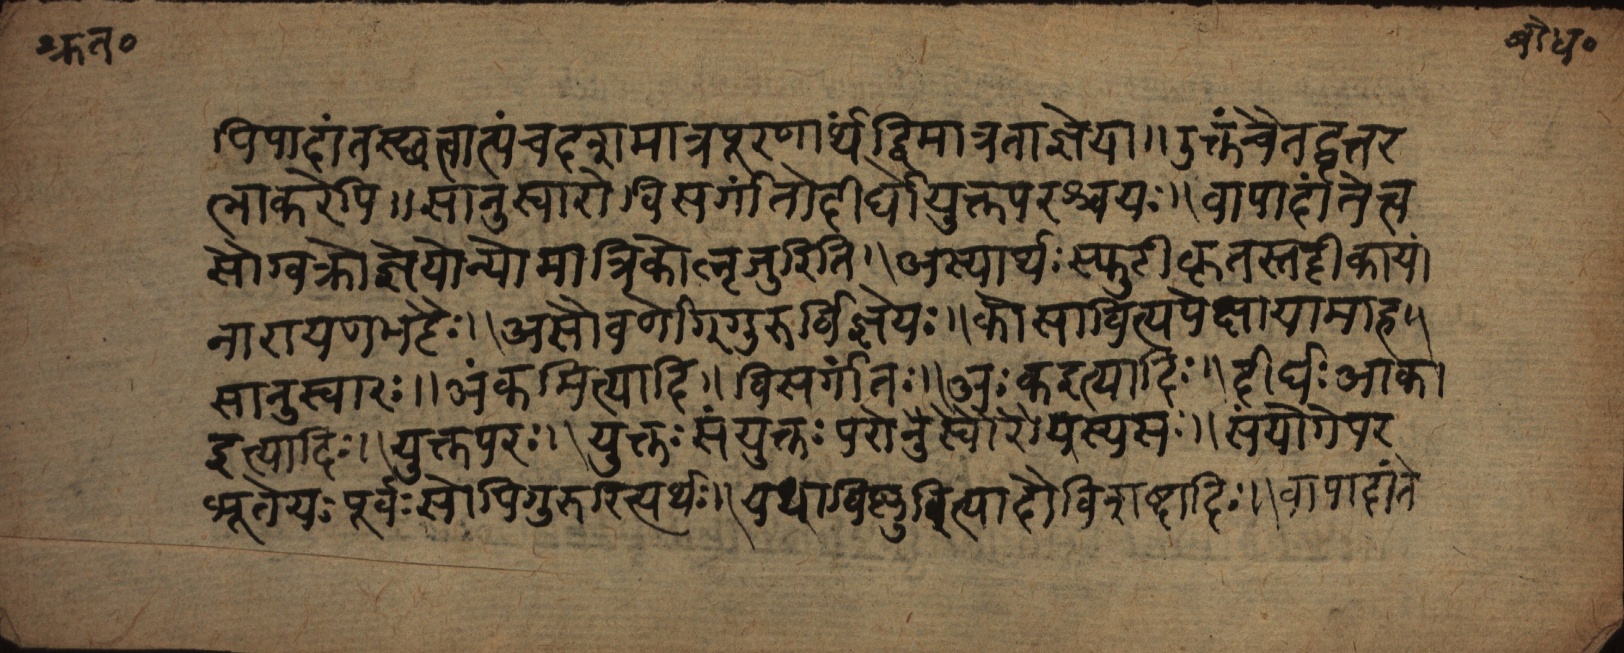 श्रुत॰ बोध॰
पिपादांतस्छत्वात्पंचदशमात्रपूरणार्थंद्विमात्रताज्ञेया॥उक्तंचैतद्वृत्तर
त्नाकरेपि॥सानुस्वारोविसर्गांतोदीर्घोयुक्तपरश्चयः॥वापादांतेत्व
सौग्वक्रोज्ञेयोन्योमात्रिकोलृजुरिति॥अस्यार्थःस्फुटीकृतस्तट्टीकायां
नारायणभट्टैः॥असौवर्णोग्गुरुर्विज्ञेयः॥कोसावित्यपेक्षायामाह॥
सानुस्वारः॥अंकमित्यादि॥विसर्गांतः॥अःकइत्यादिः॥दीर्घःआका
इत्यादिः॥युक्तपरः॥युक्तःसंयुक्तःपरोनुस्वारोयस्यसः॥संयोगेपर
भूतेयःपूर्वःसोपिगुरुरित्यर्थः॥यथाविष्णुवित्यादौविशब्दादिः॥वापादांते